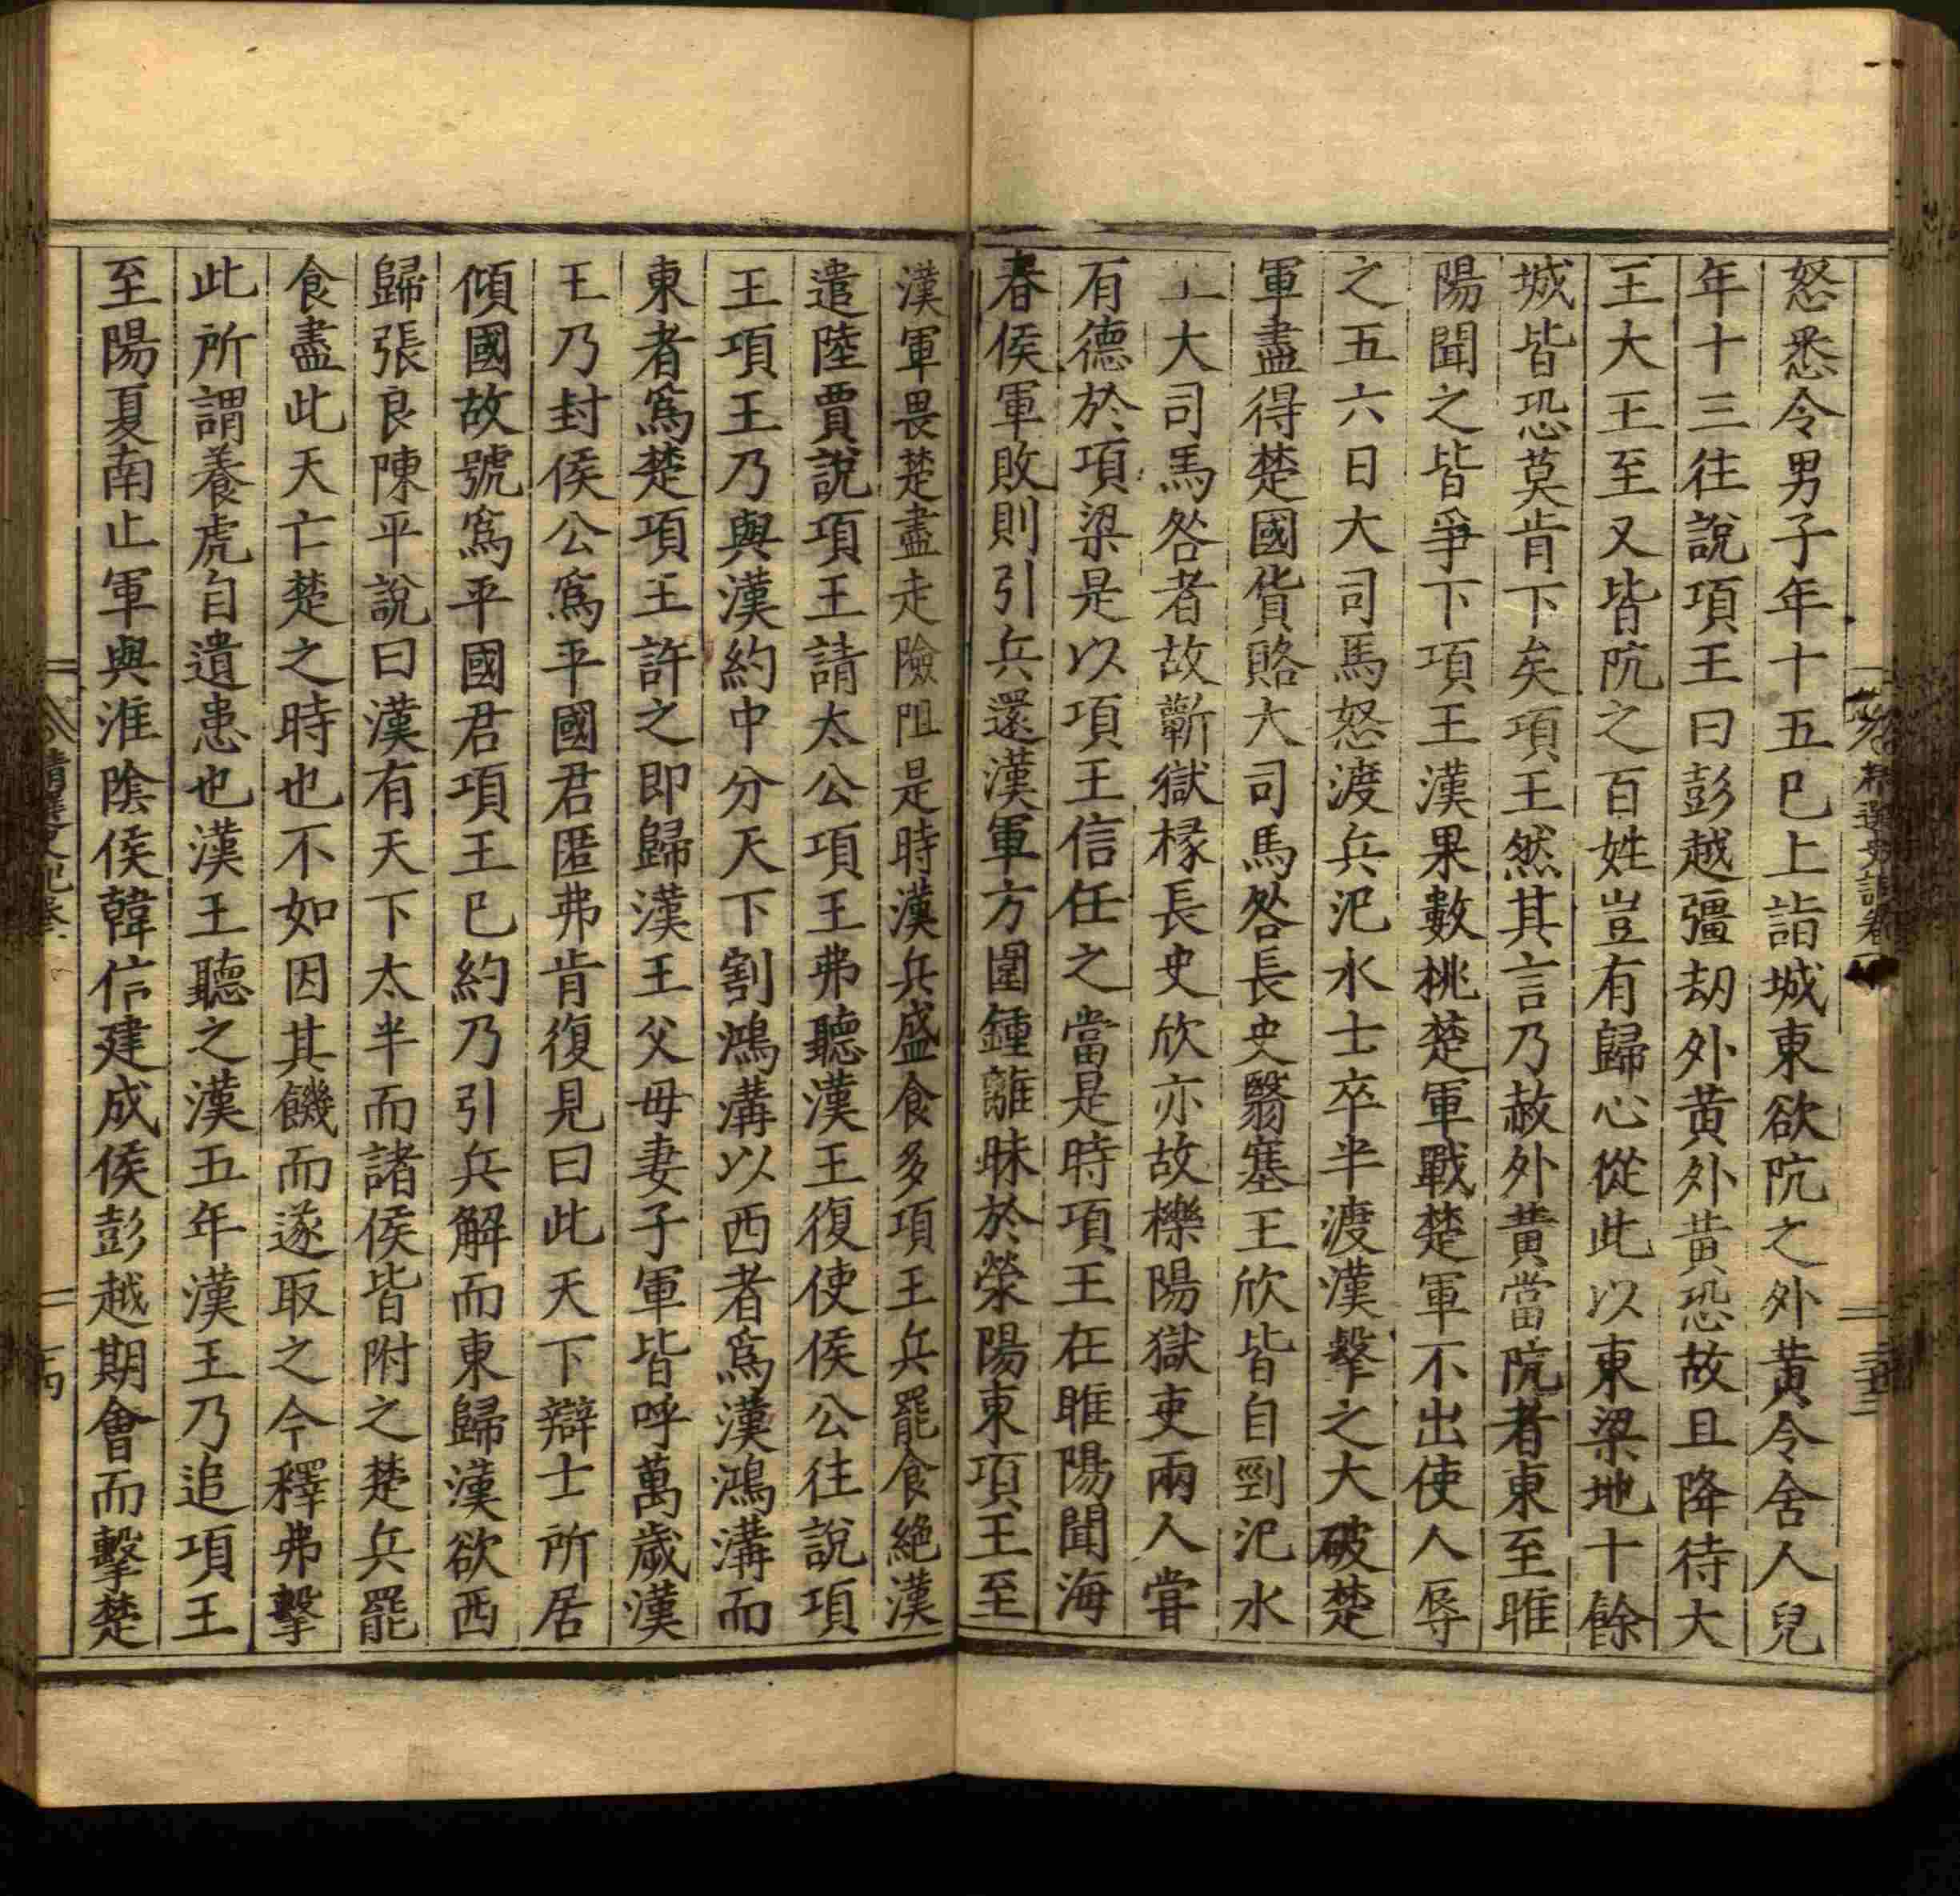 怒悉令男子年十五已上詣城東欲阬之外黃令舍人兒
年十三往說項王曰彭越彊劫外黃外黃恐故且降待大
王大王至又皆阬之百姓豈有歸心從此以東梁地十餘
城皆恐莫肯下矣項王然其言乃赦外黃當阬者東至睢
陽聞之皆爭下項王漢果數挑楚軍戰楚軍不出使人辱
之五六日大司馬怒渡兵汜水士卒半渡漢擊之大破楚
軍盡得楚國貨賂大司馬咎長史翳塞王欣皆自剄汜水
上大司馬咎者故蘄獄掾長史欣亦故櫟陽獄吏兩人嘗
有德於項梁是以項王信任之當是時項王在睢陽聞海
春侯軍敗則引兵還漢軍方圍鍾離眛於滎陽東項王至
漢軍畏楚盡走險阻是時漢兵盛食多項王兵罷食絕漢
遣陸賈說項王請太公項王弗聽漢王復使侯公往說項
王項王乃與漢約中分天下割鴻溝以西者爲漢鴻溝而
東者爲楚項王許之即歸漢王父母妻子軍皆呼萬歲漢
王乃封侯公爲平國君匿弗肯復見曰此天下辯士所居
傾國故號爲平國君項王已約乃引兵解而東歸漢欲西
歸張良陳平說曰漢有天下太半而諸侯皆附之楚兵罷
食盡此天亡楚之時也不如因其饑而遂取之今釋弗擊
此所謂養虎自遺患也漢王聽之漢五年漢王乃追項王
至陽夏南止軍與淮陰侯韓信建成侯彭越期會而擊楚